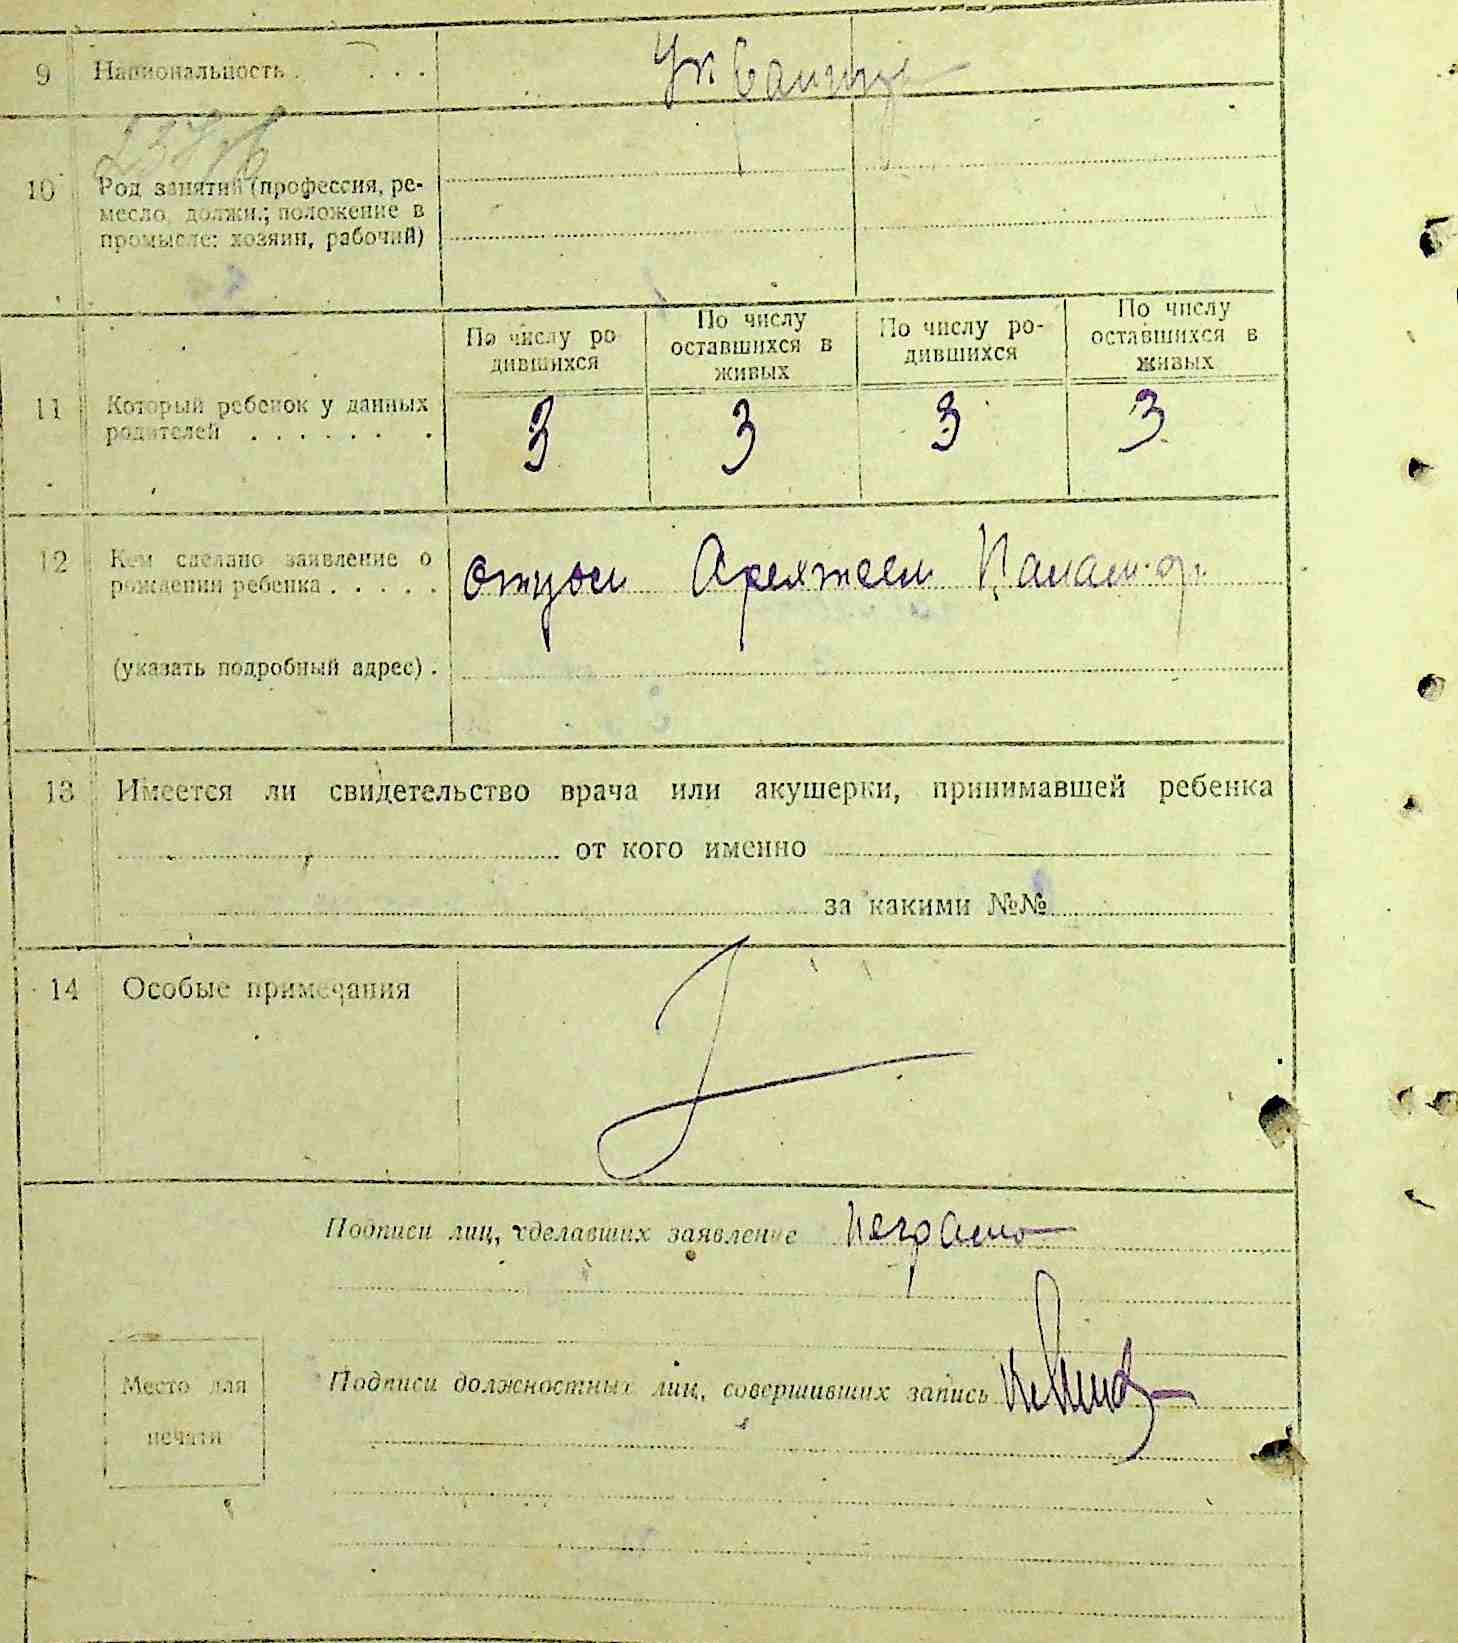 9 Национальность . . . .
10 Род занятий (профессия, ре-
месло, должн.; положение в
промысле: хозяин, рабочий)
По числу ро-
дившихся
По числу
оставшихся в
живых
По числу ро-
дившихся
По числу
оставшихся в
живых
11 Который ребенок у данных
родителей . . . . . . .
3 3 3 3
12 Кем сделано заявление о
рождении ребенка . . . . .
отцом
(указать подробный адрес) .
13 Имеется ли свидетельство врача или акушерки, принимавшей ребенка
от кого именно
за какими №№
14 Особые примечания
Подписи лиц, сделавших заявление неграмо
Подписи должностных лиц, совершивших запись
Место для
печати